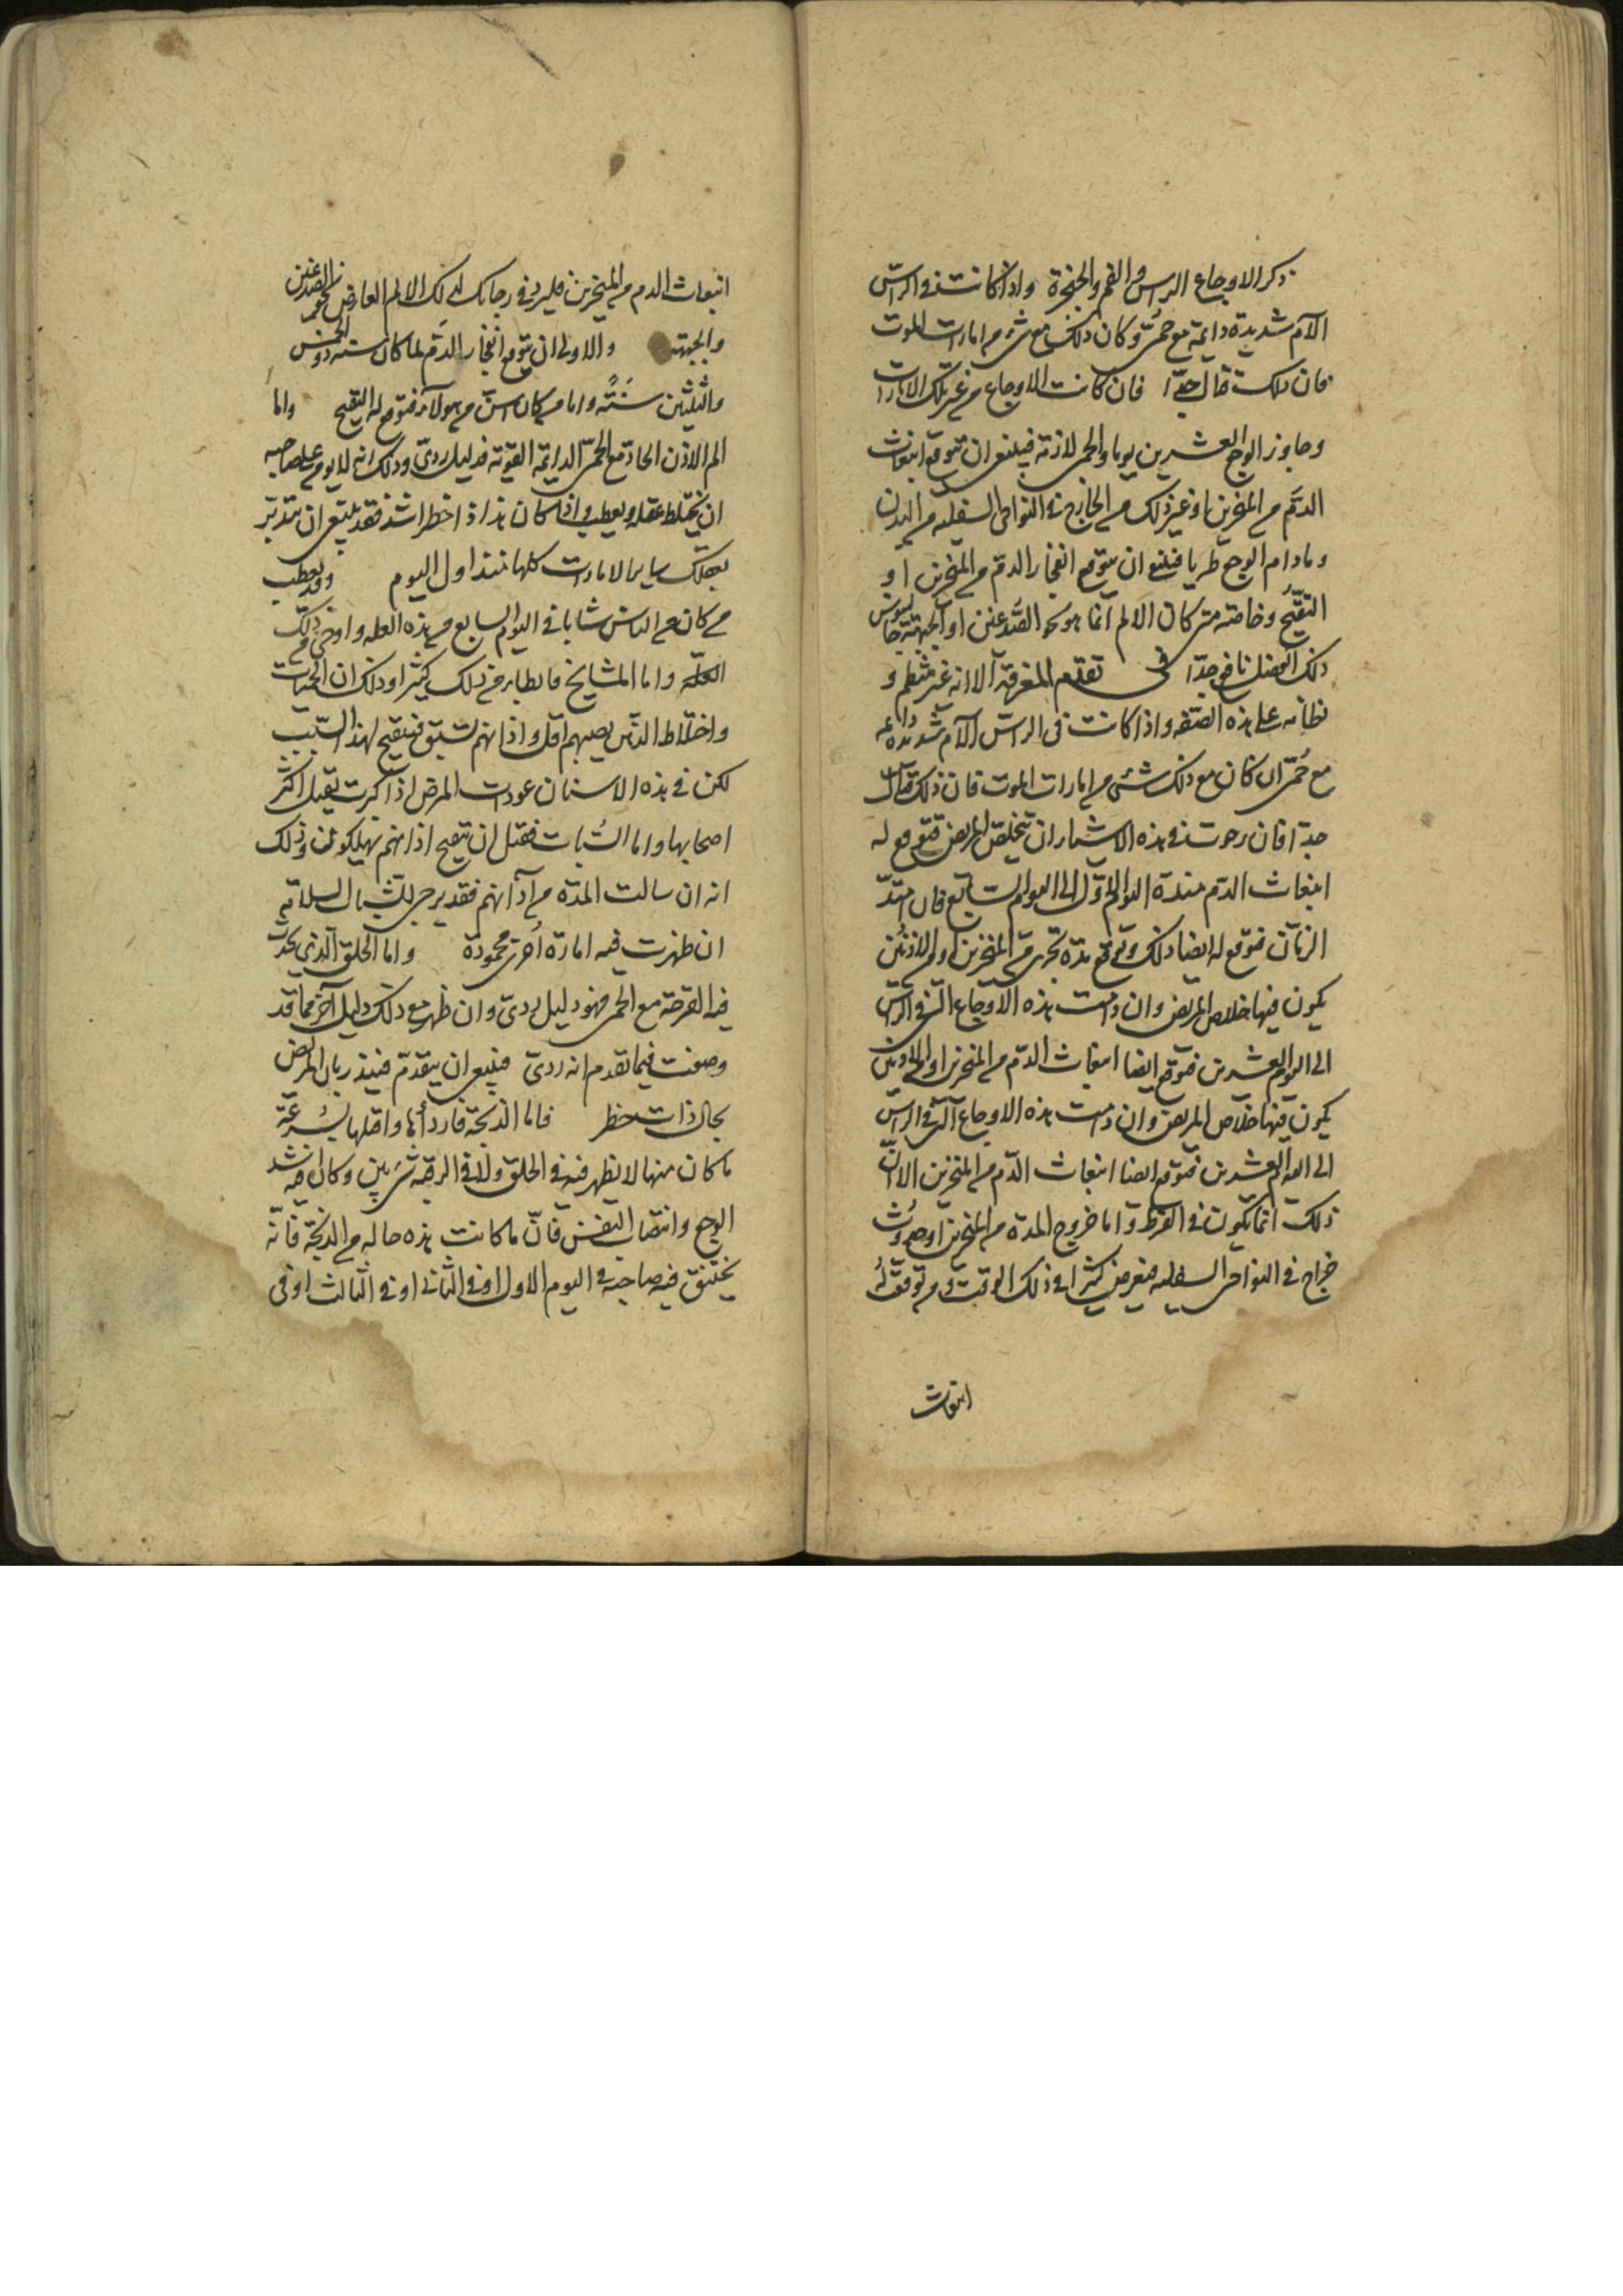 ذكر الاوجاع الراس والفم والحنجرة واذا كانت في الراس
الآم شديدة دايمة مع حمى وكان ذلك مع شى من امارات الموت
فان ذلك قتال جدا فان كانت الاوجاع من غير تلك الامارات
وجاوز الوجع العشرين يوما والحمى لازمة فينبغى ان تتوقع انبعاث
الدم من المنخرين او غير ذلك من الخارج في النواحى السفليه من البدن
ومادام الوجع طريا فينبغى ان يتوقع انفجار الدم من المنخرين او
التقيح وخاصة متى كان الالم انما هو نحو الصدغين او الجبهة
ذلك الفصل نافع جدا في تقدم المعرفة الا انه غير منتظم و
نظامه على هذه الصفه واذا كانت في الراس الآم شديدة دايمه
مع حمى ان كان مع ذلك شئ من امارات الموت فان ذلك قتال
جدا فان رجوت في هذه الاشياء ان يتخلص المريض فتوقع له
انبعاث الدم منذ اليوم الاول الى اليوم السابع فان امتد
الزمان فتوقع له ايضا ذلك وتوقع مدة تجرى من المنخرين او من الاذنين
يكون فيها خلاص المريض وان دامت هذه الاوجاع التى في الراس
الى اليوم العشرين فتوقع ايضا انبعاث الدم من المنخرين او
يكون فيها خلاص المريض وان دامت هذه الاوجاع التى في الراس
الى اليوم العشرين فتوقع ايضا انبعاث الدم من المنخرين الا ان
ذلك انما يكون في الفرط واما خروج المدة من المنخرين او حدوث
خراج في النواحى السفليه فيعرض كثيرا في ذلك الوقت ومن توقعت له
انبعاث
انبعاث الدم من المنخرين فليرد في رجائك لذلك الالم العارض نحو الصدغين
والجبهة والاولى ان يتوقع انفجار الدم لما كان سنه دون الخمس
والثلثين سنة واما من كان اسن من هولآء فتوقع له التقيح واما
الم الاذن الحاد مع الحمى الدايمة القوية فدليل ردى وذلك انه لا يومن على صاحبه
ان يختلط عقله ويعطب واذا كان هذا ذا خطر اشد فقد ينبغى ان تتدبر
بعقلك ساير الامارات كلها منذ اول اليوم وقد يعطب
من كان من الناس شابا في اليوم السابع من هذه العله واوحى من ذلك
العلة واما المشايخ فابطا من ذلك كثيرا وذلك ان الحميات
واختلاط الذهن يصيبهم اقل واذانهم تسبق فتتقيح لهذا السبب
لكن في هذه الاسنان عودات المرض اذا كرت تقتل اكثر
اصحابها واما الشباب فقبل ان يتقيح اذانهم يهلكون وذلك
انه ان سالت المدة من آذانهم فقد يرجى للشبان السلامة
ان ظهرت فيه امارة اخرى محمودة واما الحلق الذى يحدث
فيه القرحة مع الحمى فهو دليل ردى وان ظهر مع ذلك دليل آخر مما قد
وصفت فيما تقدم انه ردى فينبغى ان يتقدم فينذر بان المريض
بحال ذات خطر فاما الذبحة فاردأها واقتلها بسرعة
ما كان منها لا يظهر فيه في الحلق ولا في الرقبة شى بين وكان فيه اشد
الوجع وانتصاب النفس فان ما كانت هذه حاله من الذبحة فانه
يختنق فيه صاحبه في اليوم الاول او في الثانى او في الثالث او في